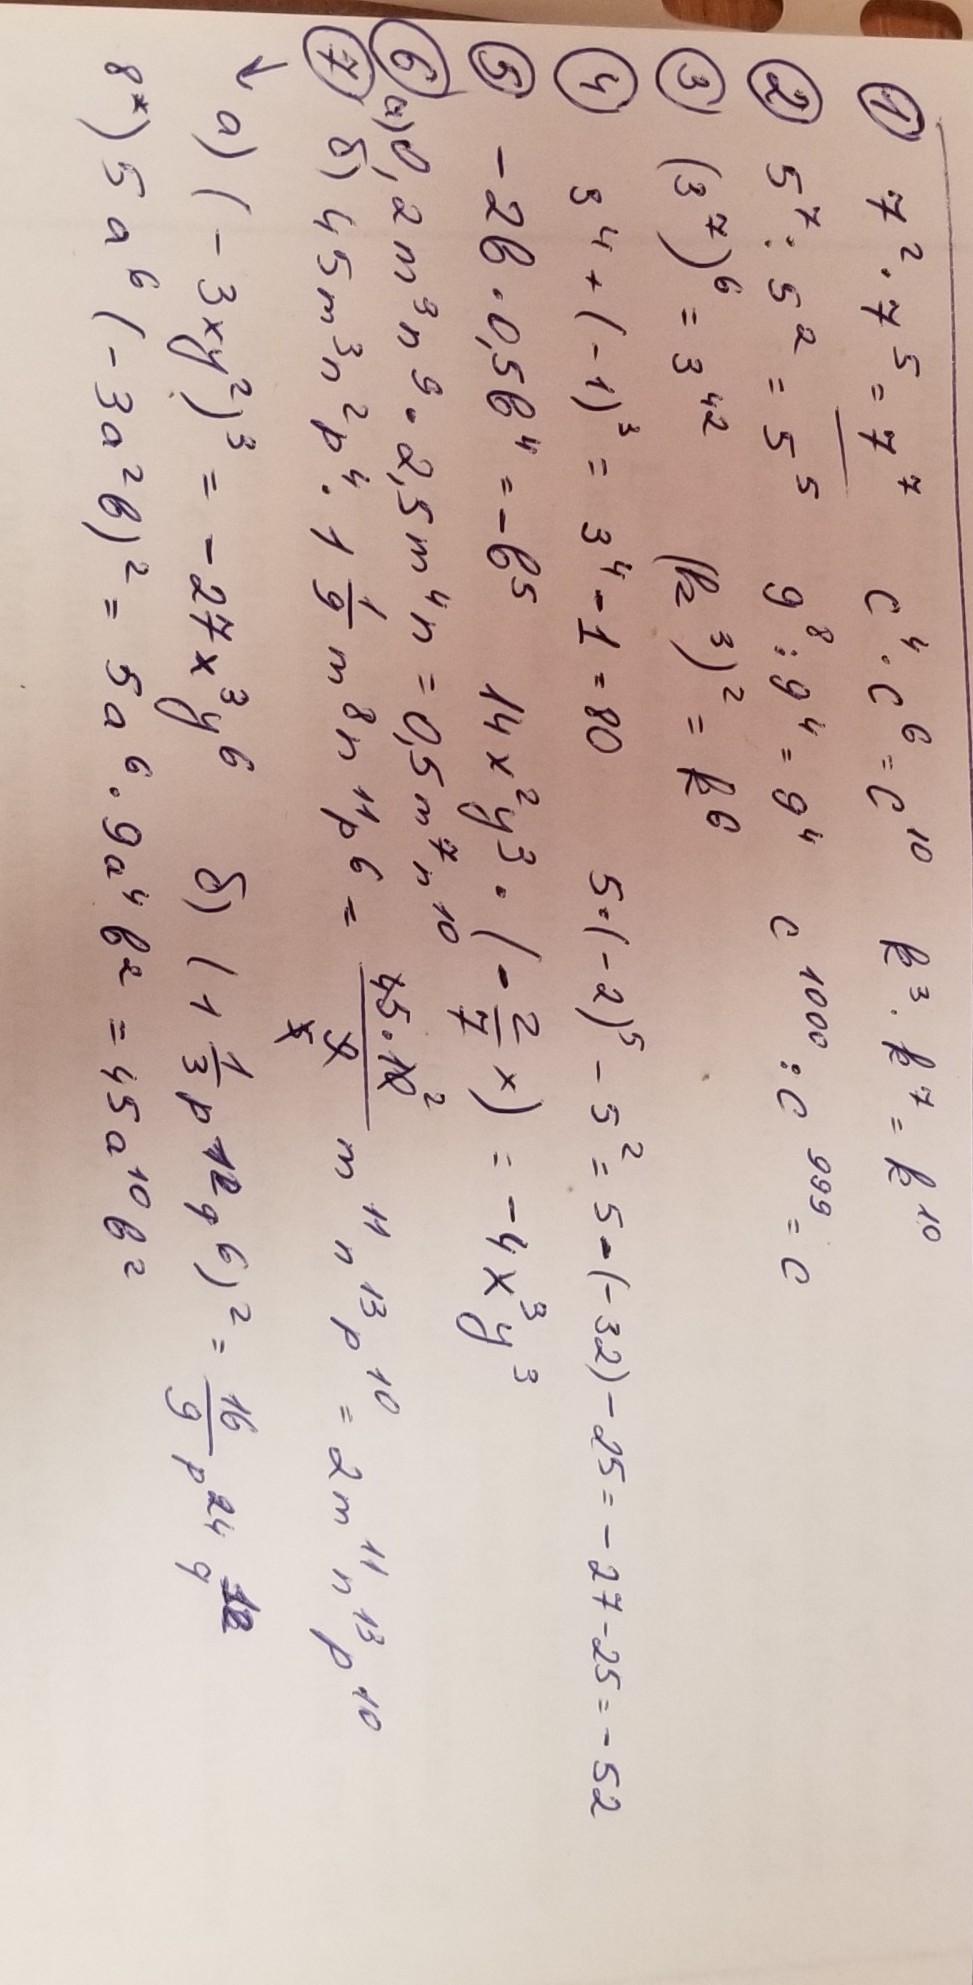 ① 7² · 7⁵ = 7⁷ c⁴ · c⁶ = c¹⁰ k³ · k⁷ = k¹⁰
② 5⁷ : 5² = 5⁵ 9⁸ : 9⁴ = 9⁴ c¹⁰⁰⁰ : c⁹⁹⁹ = c
③ (3⁷)⁶ = 3⁴² (k³)² = k⁶
④ 3⁴ + (-1)³ = 3⁴ - 1 = 80 5·(-2)⁵ - 5² = 5-(-32) - 25 = -27-25 = -52
⑤ -2b · 0,5b⁴ = -b⁵ 14x²y³ · (-2/7 x) = -4x³y³
⑥ а) 0,2m³n⁹ · 2,5m⁴n = 0,5m⁷n¹⁰
⑦ б) 45m³n²p⁴ · 1 1/9 m⁸n¹¹p⁶ = 45·10²/9 m¹¹n¹³p¹⁰ = 2m¹¹n¹³p¹⁰
↓ а) (-3xy²)³ = -27x³y⁶ б) (1 1/3 p¹²q⁶)² = 16/9 p²⁴q¹²
8*) 5a⁶(-3a²b)² = 5a⁶ · 9a⁴b² = 45a¹⁰b²